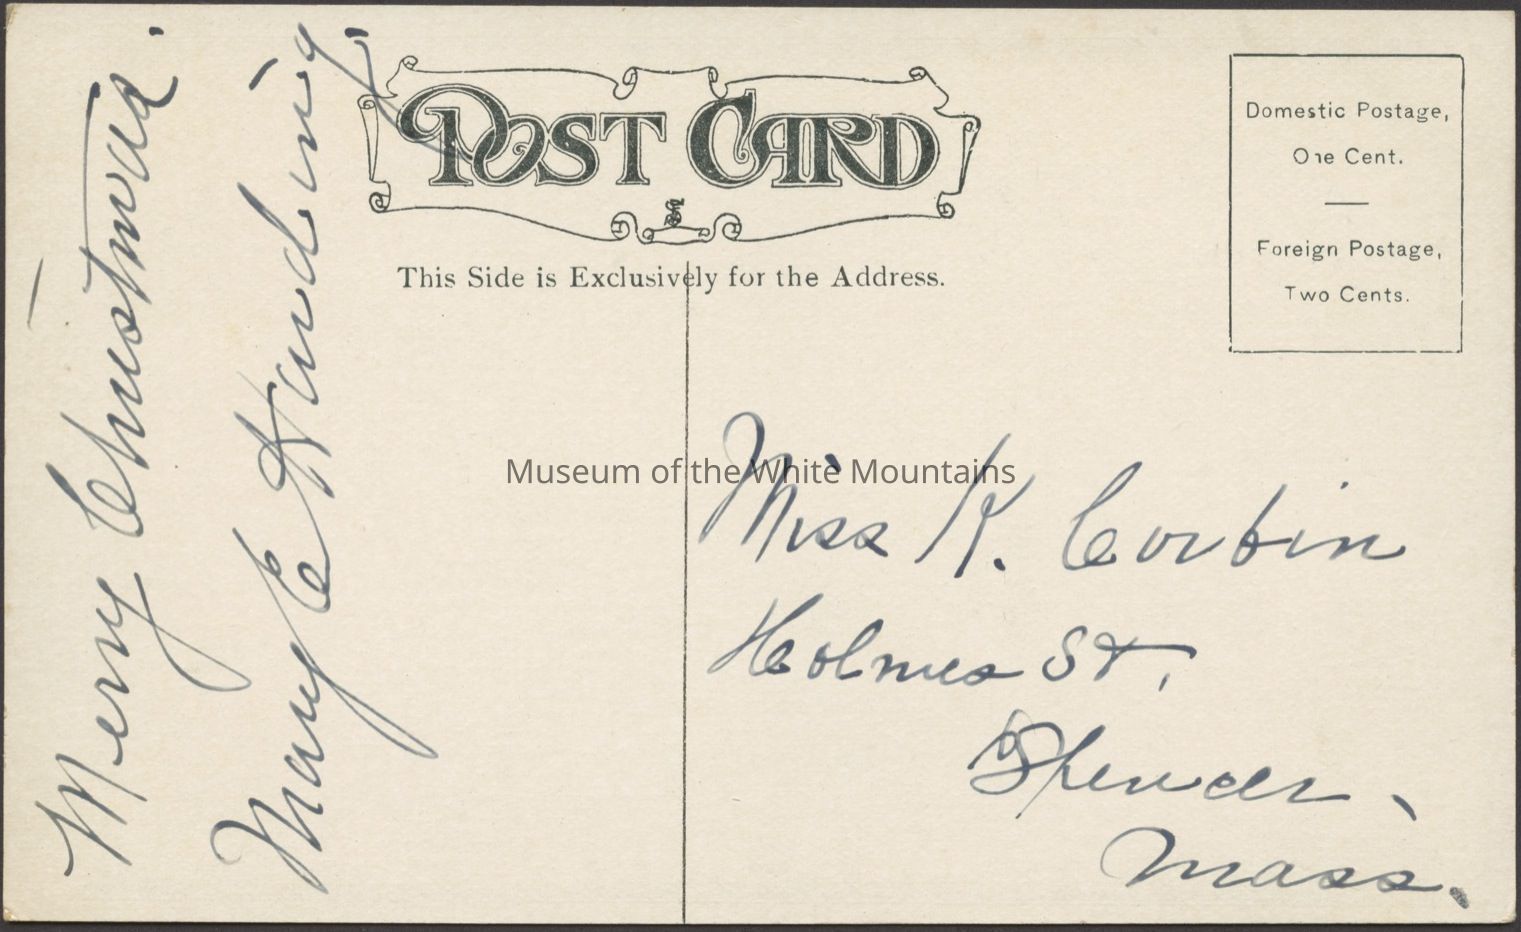 POST CARD
This Side is Exclusively for the Address.
Domestic Postage,
One Cent.
Foreign Postage,
Two Cents.
Merry Christmas.
Mary E Harding.
Museum of the White Mountains
Miss K. Corbin
Holmes St,
Spencer,
Mass.